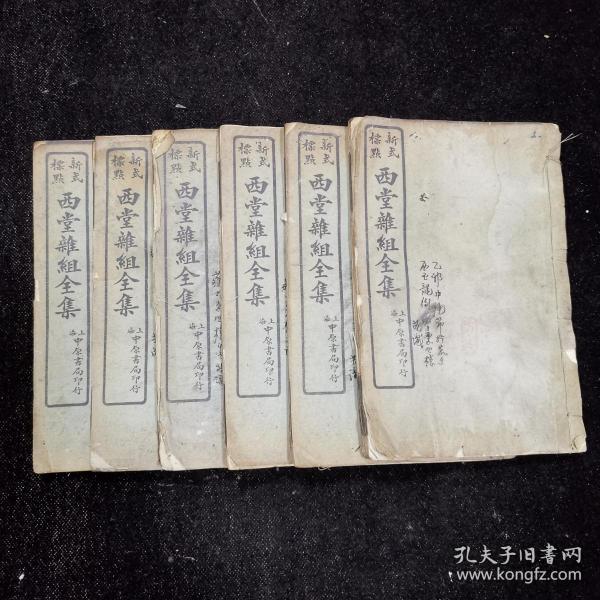 新式
標點
西堂雜組全集
上海
中原書局印行
新式
標點
西堂雜組全集
上海
中原書局印行
新式
標點
西堂雜組全集
上海
中原書局印行
新式
標點
西堂雜組全集
上海
中原書局印行
新式
標點
西堂雜組全集
上海
中原書局印行
新式
標點
西堂雜組全集
上海
中原書局印行
孔夫子旧書网
www.kongfz.com